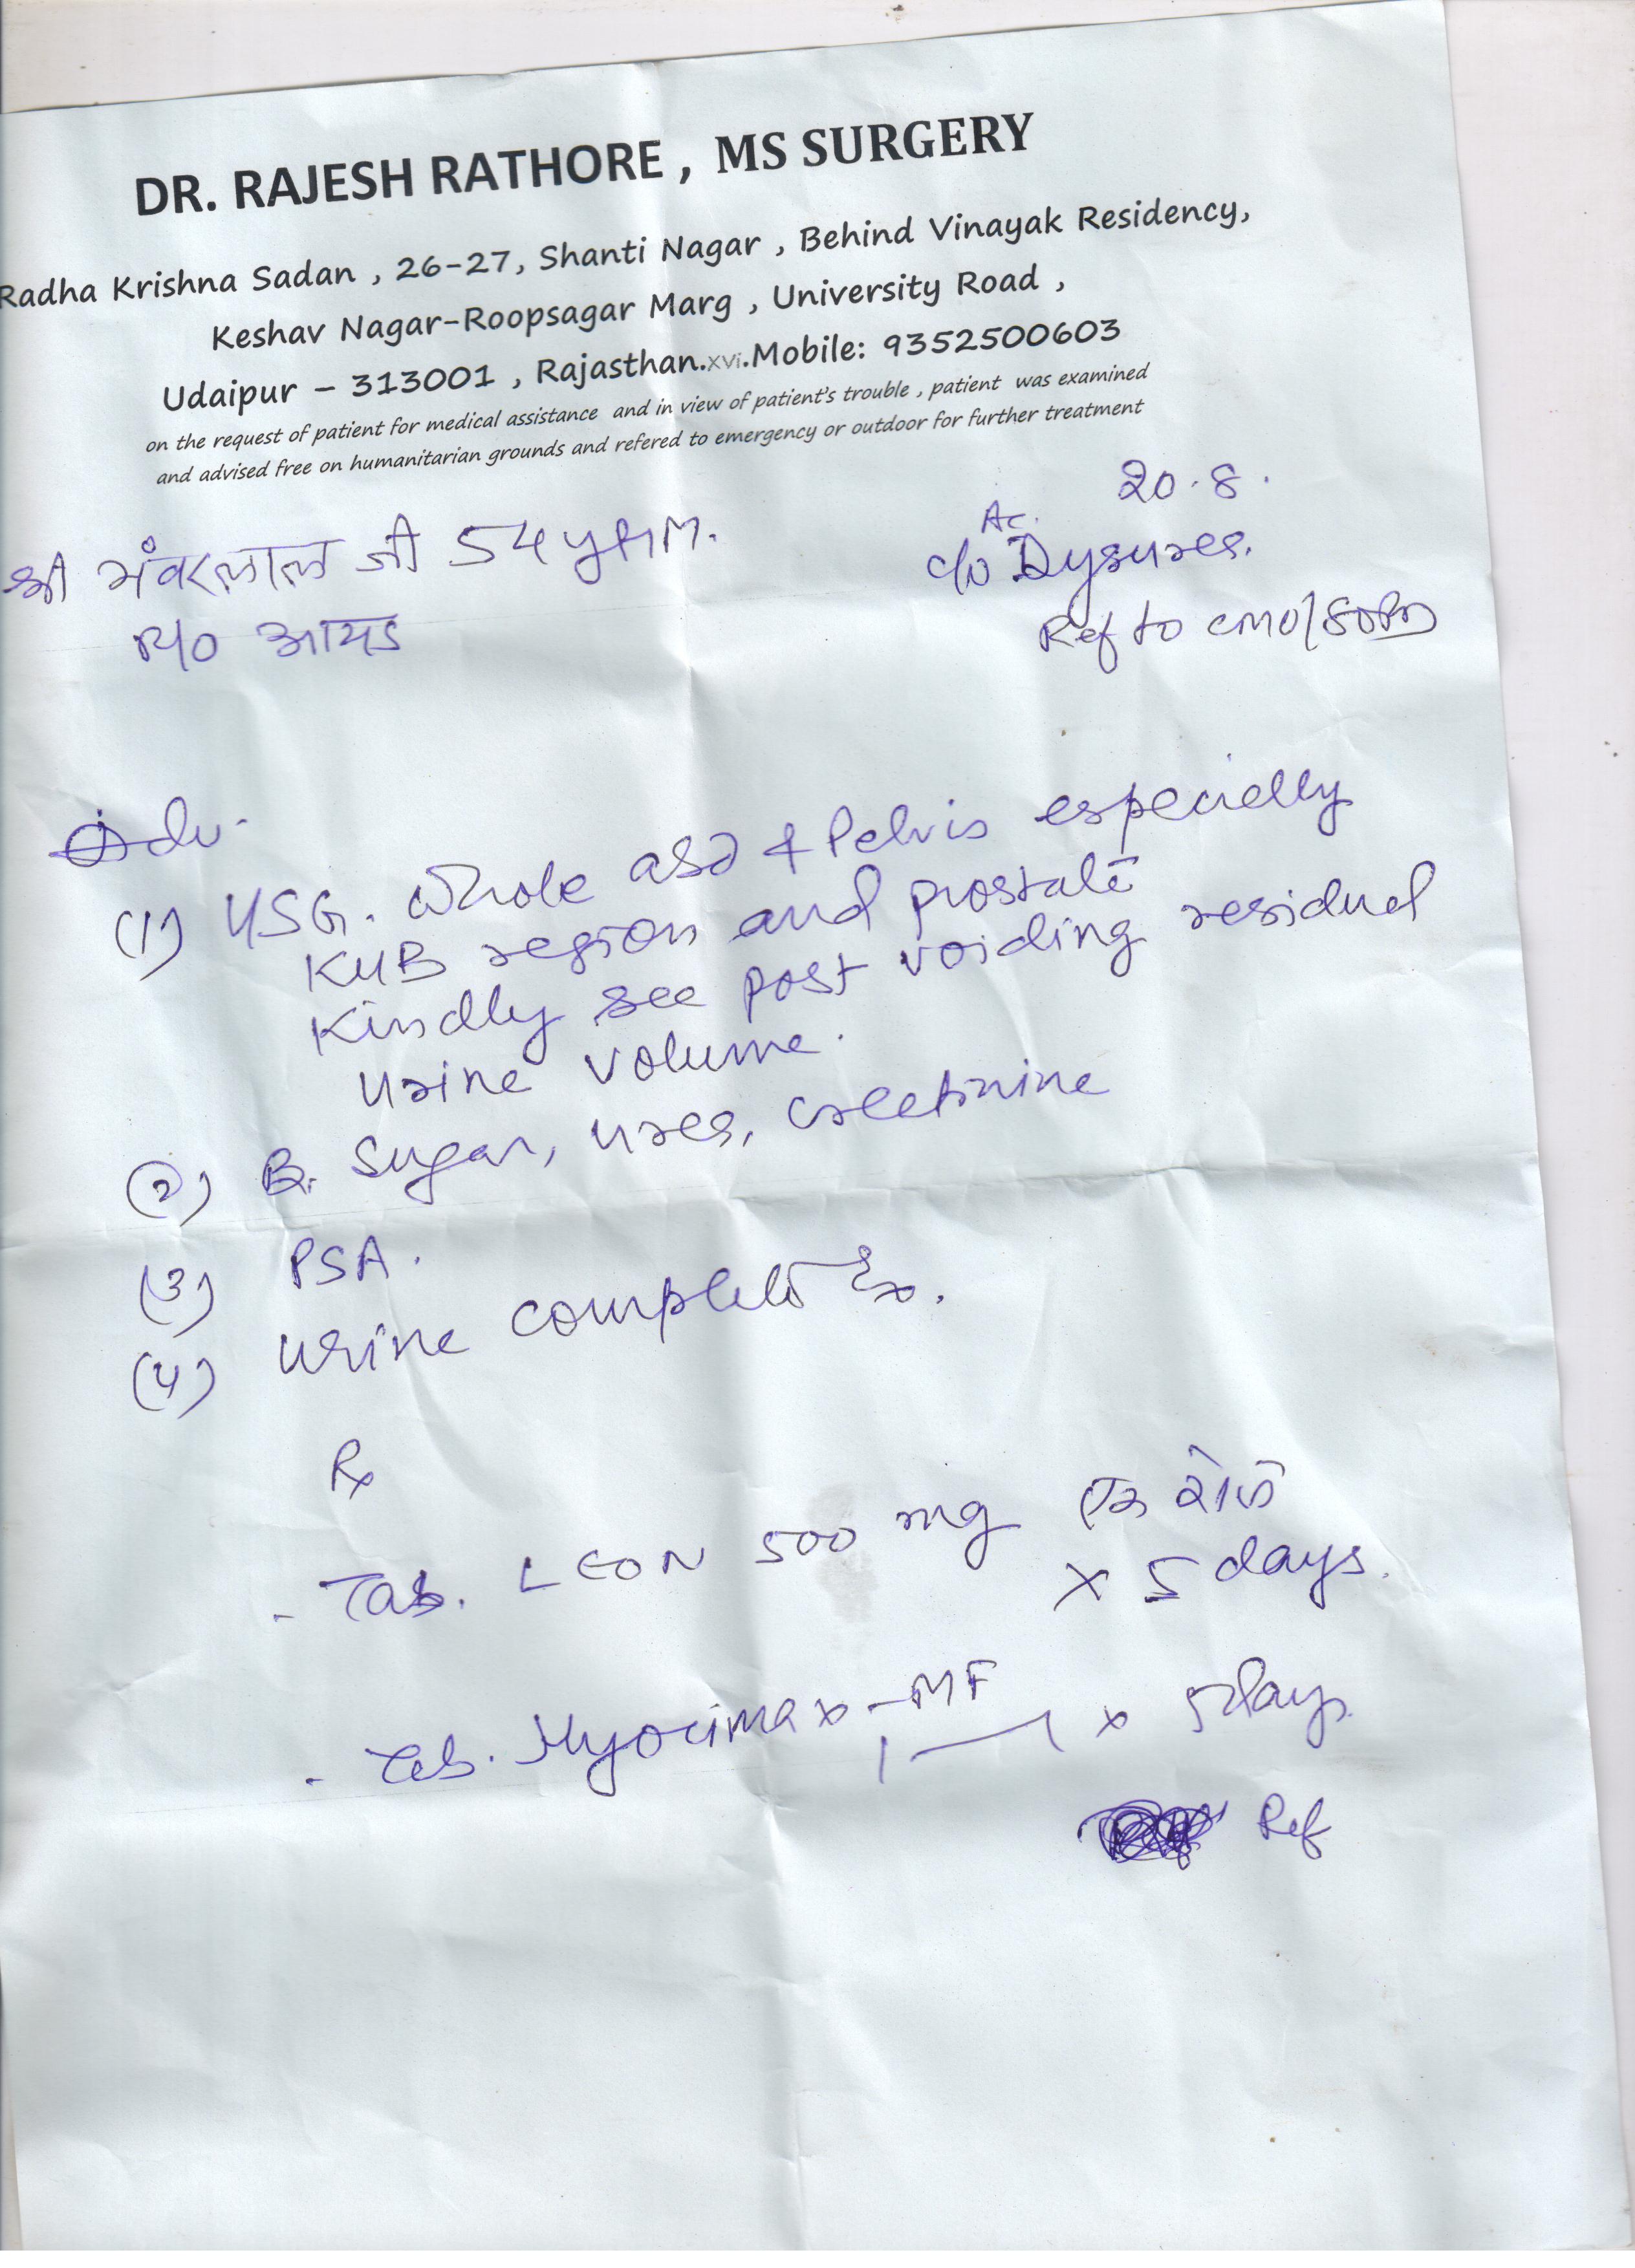 DR. RAJESH RATHORE , MS SURGERY
Radha Krishna Sadan , 26-27, Shanti Nagar , Behind Vinayak Residency,
Keshav Nagar-Roopsagar Marg , University Road ,
Udaipur – 313001 , Rajasthan.xvi.Mobile: 9352500603
on the request of patient for medical assistance and in view of patient's trouble , patient was examined
and advised free on humanitarian grounds and refered to emergency or outdoor for further treatment
20.8.
श्री भंवरलाल जी 54 yrs M.
R/o आयड
Ac.
c/o Dysurea.
Ref to CMO/SOPD
Adv.
(1) USG. Whole abd & Pelvis especially
KUB region and prostate
Kindly see post voiding residual
Urine volume.
(2) B. Sugar, urea, creetinine
(3) PSA.
(4) Urine complete Ex.
Rx
- Tab. LEON 500 mg एक रोज
x 5 days.
- Tab. Myocimax-MF
1—1 x 5 days.
Ref